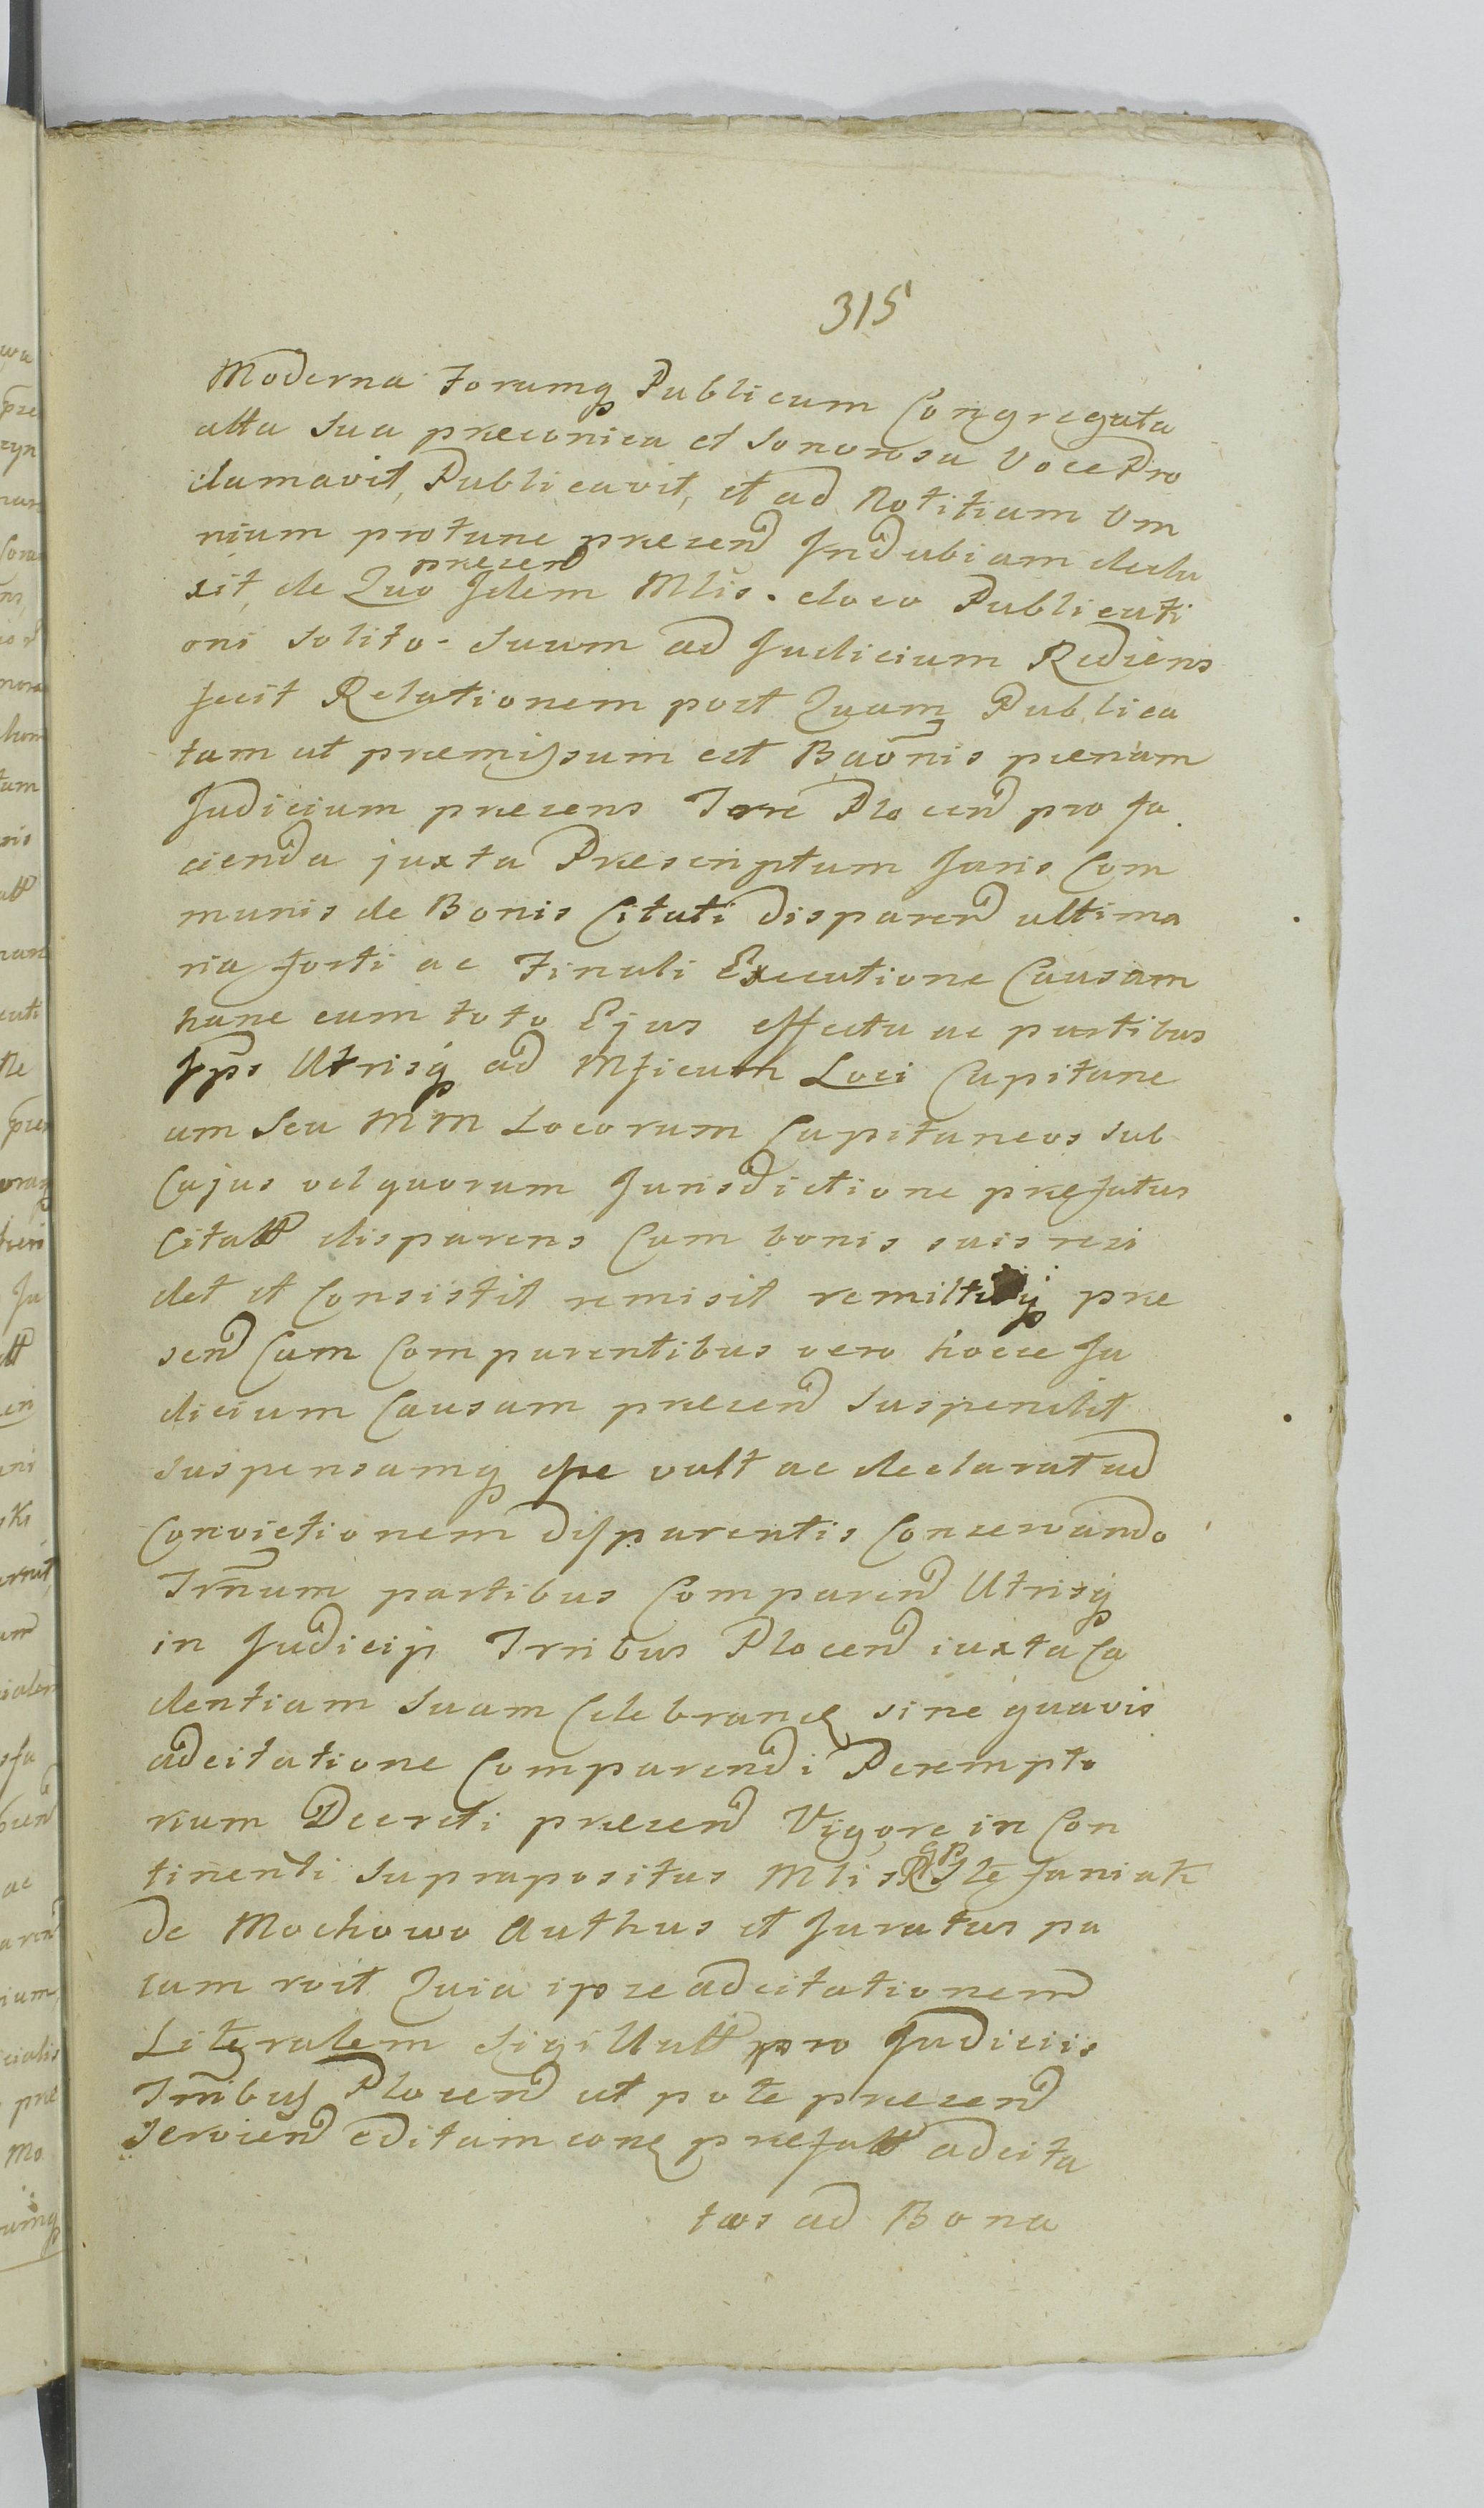 315
Moderna Forumq Publicum Congregata
alta Sua preconica et Sonorosa Voce Pro
clamavit, Publicavit, et ad Notitiam Om
nium protunc presend Indubiam dedu
presend
xit, de Quo Idem Mlis. eloco Publicati
oni Solito. Suum ad Judicium Rediens
fecit Relationem post Quam Publica
tam ut premissum est Baonis penam
Judicium presens Terre Plocend pro fa
cienda juxta Prescriptum Juris Com
munis de Bonis Citati disparend ultima
ria forti ac Finali Executione Causam
hanc cum toto Ejus effectu ac partibus
Ips Utrisq ad Mficum Loci Capitane
um Seu MM Locorum Capitaneos sub
Cujus vel quorum Jurisdictione prefatus
Citatt disparens Cum bonis suis resi
det et Consistit remisit remittitq pre
send Cum Comparentibus vero hocce Ju
dicium Causam presend Suspendit
Suspensamq esse vult ac declarat ad
Convictionem disparentis Conservando
Trnum partibus Comparend Utrisq
in Judicijs Trribus Plocend iuxta Ca
dentiam Suam Celebrand sine quavis
adcitatione Comparendi Perempto
rium Decreti presend Vigore in Con
tinenti Suprapositus Mlis Ste faniak
de Mochowo Authus et Juratus pa
lam roit Quia ipse adcitationem
Literalem Sigillatt pro Judiciis
Trribus Plocend ut pote presend
Serviend editam eone prefatt adcita
tos ad Bona